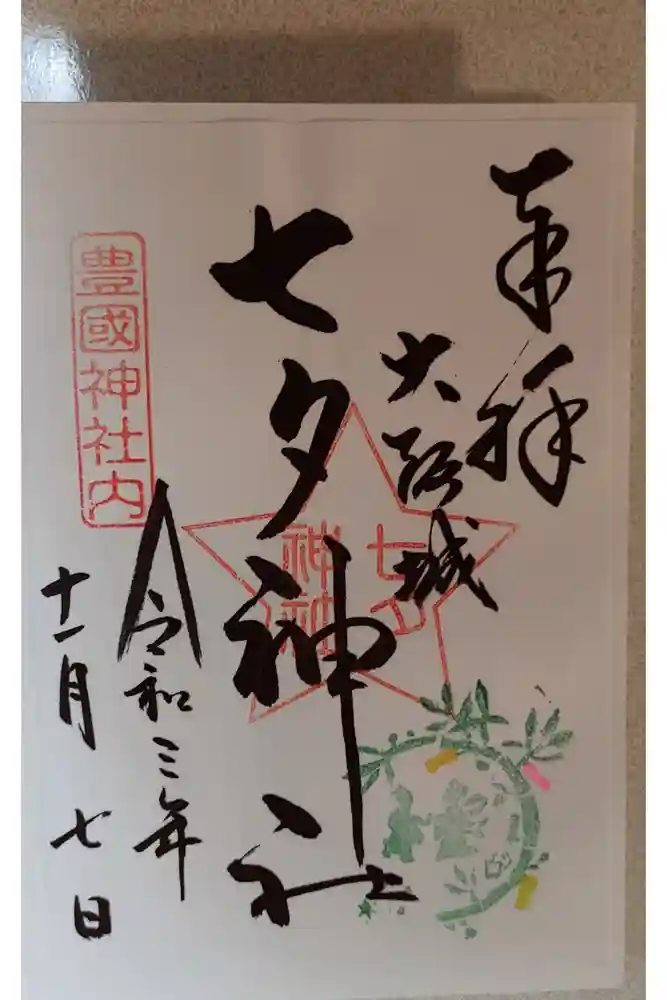 奉拝
大阪城
七夕神社
七夕
神社
豊國神社内
令和三年
十一月七日